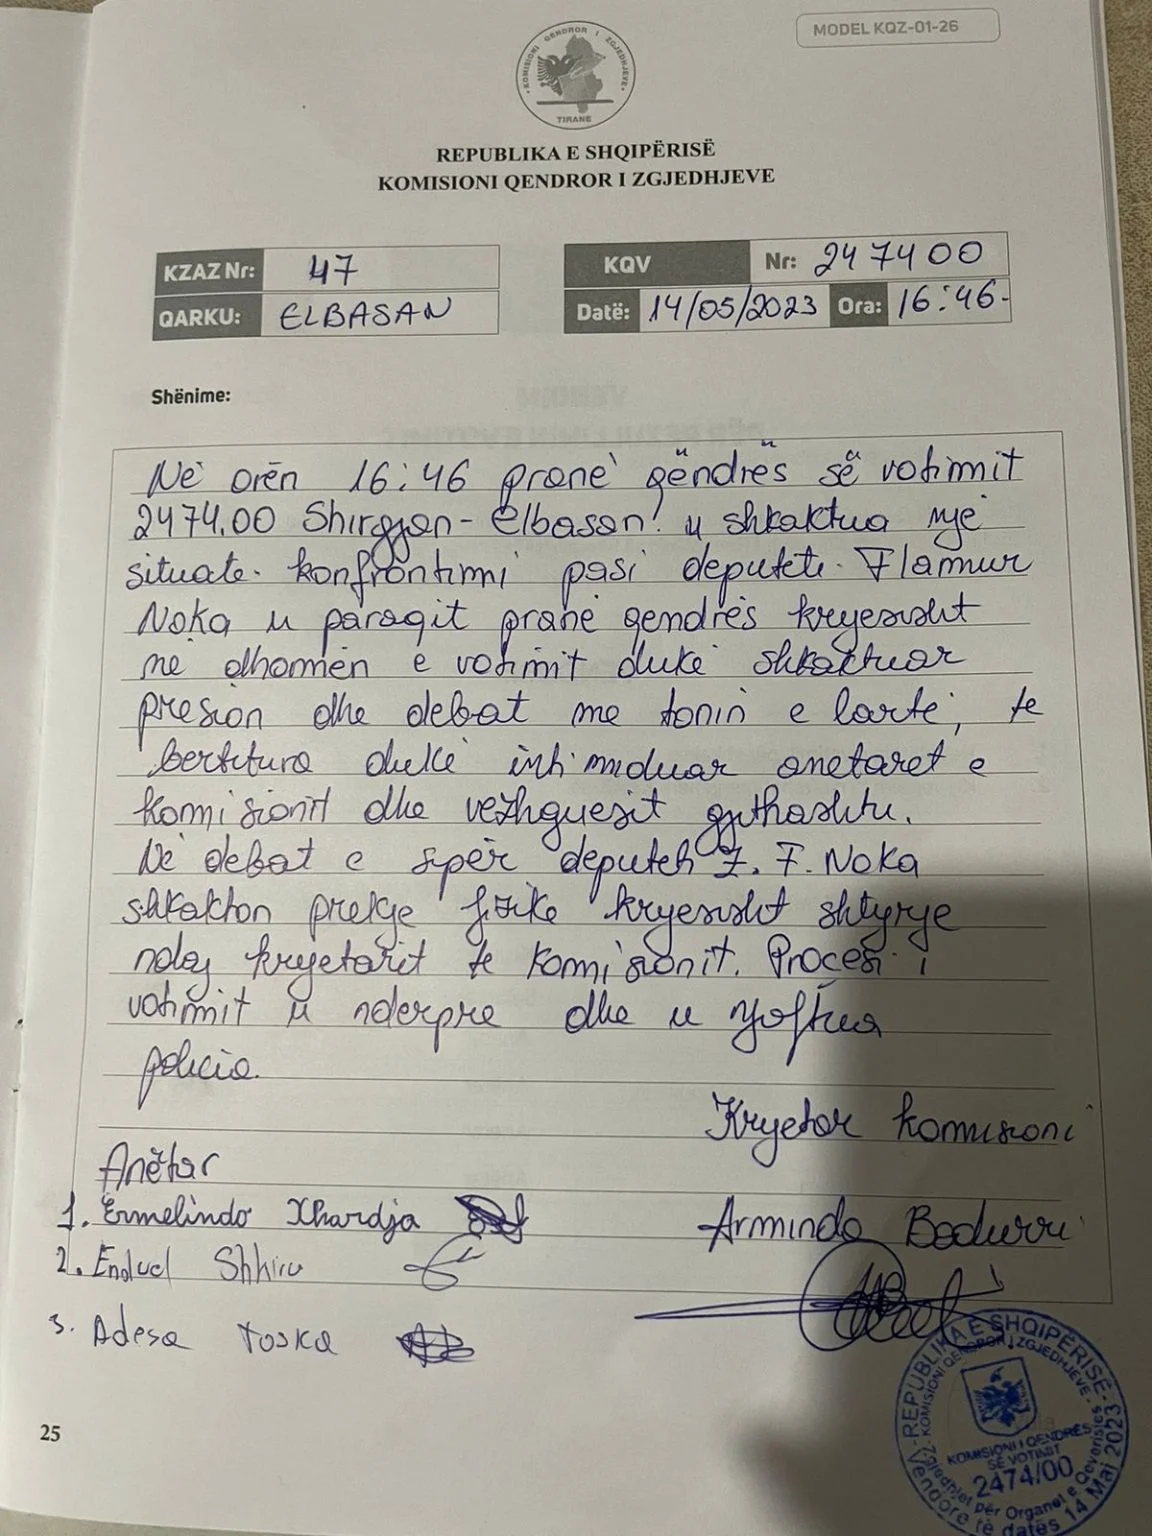 MODEL KQZ-01-26
KOMISIONI QENDROR I ZGJEDHJEVE
TIRANE
REPUBLIKA E SHQIPËRISË
KOMISIONI QENDROR I ZGJEDHJEVE
KZAZ Nr: 47
KQV Nr: 247400
QARKU: ELBASAN
Datë: 14/05/2023 Ora: 16:46.
Shënime:
Në orën 16:46 pranë qëndrës së votimit
2474.00 Shirgjan-Elbasan! u shkaktua një
situate konfrontimi pasi deputeti Flamur
Noka u paraqit pranë qendrës kryesisht
në dhomën e votimit duke shkaktuar
presion dhe debat me tonin e lartë, te
bertitura duke intimiduar anetaret e
komisionit dhe vezhguesit gjithashtu.
Në debat e sipër deputeti Z. F. Noka
shkakton prekje fizike kryesisht shtyrje
ndaj kryetarit te komisionit. Procesi i
votimit u nderpre dhe u njoftua
policia.
Kryetar komisioni
Anëtar
1. Ermelindo Xhardja
Arminda Badurri
2. Endual Shhiru
3. Adesa Toska
25
REPUBLIKA E SHQIPËRISË
KOMISIONI QENDROR I ZGJEDHJEVE
KOMISIONI I QENDRËS
SË VOTIMIT
2474/00
Zgjedhjet për Organet e Qeverisjes
Vendore të datës 14 Maj 2023